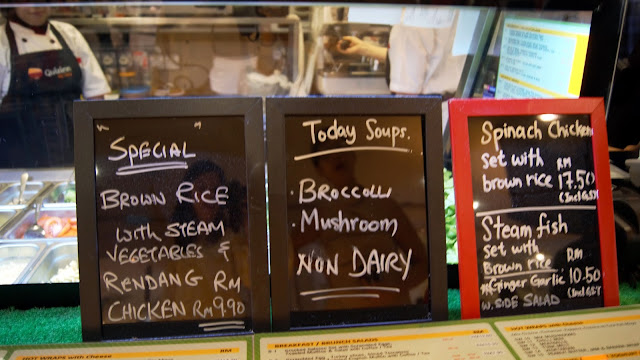 " SPECIAL "
BROWN RICE
WITH STEAM
VEGETABLES &
RENDANG RM
CHICKEN RM 9.90
Today Soups.
. BROCCOLI
. MUSHROOM
NON DAIRY
Spinach Chicken
set with RM
brown rice 17.50
(Incl GST)
Steam fish
set with RM
Brown rice 10.50
*Ginger Garlic (Incl GST)
W. SIDE SALAD
HOT WRAPS with Cheese
RM
BREAKFAST / BRUNCH SALADS
RM